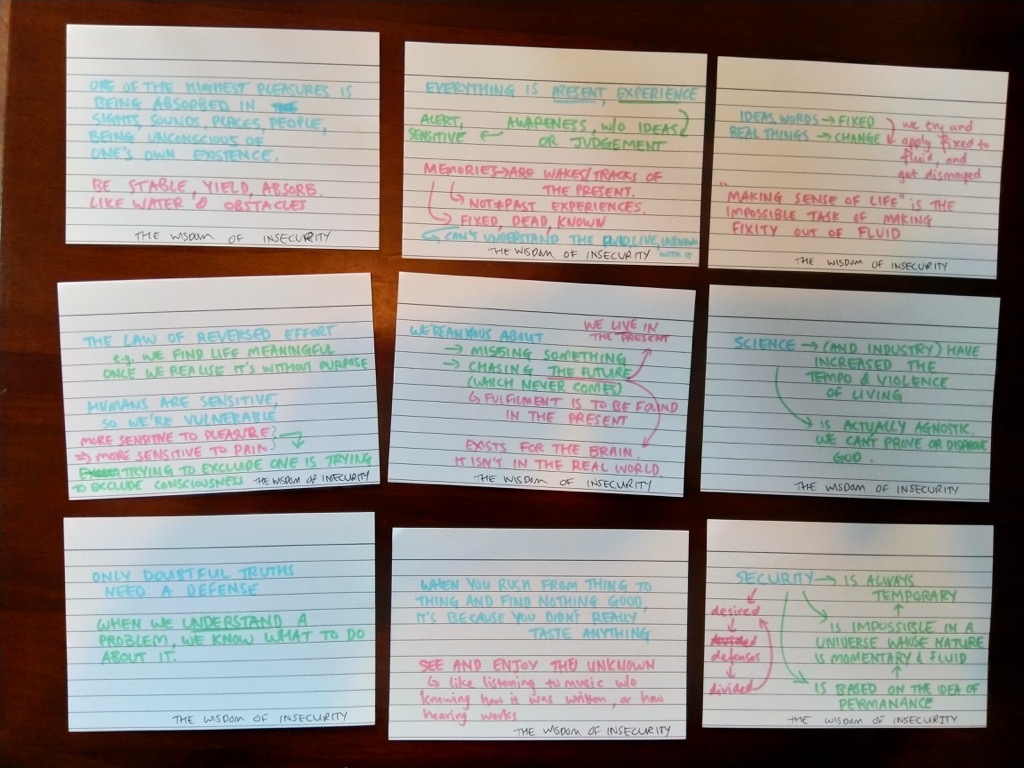 ONE OF THE HIGHEST PLEASURES IS
BEING ABSORBED IN THE
SIGHTS, SOUNDS, PLACES, PEOPLE,
BEING UNCONSCIOUS OF
ONE'S OWN EXISTENCE.
BE STABLE, YIELD, ABSORB.
LIKE WATER & OBSTACLES
THE WISDOM OF INSECURITY
EVERYTHING IS PRESENT EXPERIENCE
ALERT, SENSITIVE ← AWARENESS, W/O IDEAS
OR JUDGEMENT
MEMORIES → ARE WAKES/TRACKS OF
THE PRESENT.
↳ NOT PAST EXPERIENCES.
↳ FIXED, DEAD, KNOWN
↳ CAN'T UNDERSTAND THE FLUID, LIVE, UNKNOWN
WITH IT
THE WISDOM OF INSECURITY
IDEAS, WORDS → FIXED
REAL THINGS → CHANGE
we try and
apply fixed to
fluid, and
get dismayed
"MAKING SENSE OF LIFE" IS THE
IMPOSSIBLE TASK OF MAKING
FIXITY OUT OF FLUID
THE WISDOM OF INSECURITY
THE LAW OF REVERSED EFFORT
e.g. WE FIND LIFE MEANINGFUL
ONCE WE REALISE IT'S WITHOUT PURPOSE
HUMANS ARE SENSITIVE,
SO WE'RE VULNERABLE
MORE SENSITIVE TO PLEASURE
⇒ MORE SENSITIVE TO PAIN
TRYING TO EXCLUDE ONE IS TRYING
TO EXCLUDE CONSCIOUSNESS
THE WISDOM OF INSECURITY
WE'RE ANXIOUS ABOUT
→ MISSING SOMETHING
→ CHASING THE FUTURE
(WHICH NEVER COMES)
↳ FULFILMENT IS TO BE FOUND
IN THE PRESENT
WE LIVE IN
THE PRESENT
EXISTS FOR THE BRAIN.
IT ISN'T IN THE REAL WORLD.
THE WISDOM OF INSECURITY
SCIENCE → (AND INDUSTRY) HAVE
INCREASED THE
TEMPO & VIOLENCE
OF LIVING
↘ IS ACTUALLY AGNOSTIC.
WE CAN'T PROVE OR DISPROVE
GOD.
THE WISDOM OF INSECURITY
ONLY DOUBTFUL TRUTHS
NEED A DEFENSE
WHEN WE UNDERSTAND A
PROBLEM, WE KNOW WHAT TO DO
ABOUT IT.
THE WISDOM OF INSECURITY
WHEN YOU RUSH FROM THING TO
THING AND FIND NOTHING GOOD,
IT'S BECAUSE YOU DIDN'T REALLY
TASTE ANYTHING
SEE AND ENJOY THE UNKNOWN
↳ like listening to music w/o
knowing how it was written, or how
hearing works
THE WISDOM OF INSECURITY
SECURITY → IS ALWAYS
TEMPORARY
IS IMPOSSIBLE IN A
UNIVERSE WHOSE NATURE
IS MOMENTARY & FLUID
IS BASED ON THE IDEA OF
PERMANANCE
desired
divided
defenses
divided
THE WISDOM OF INSECURITY